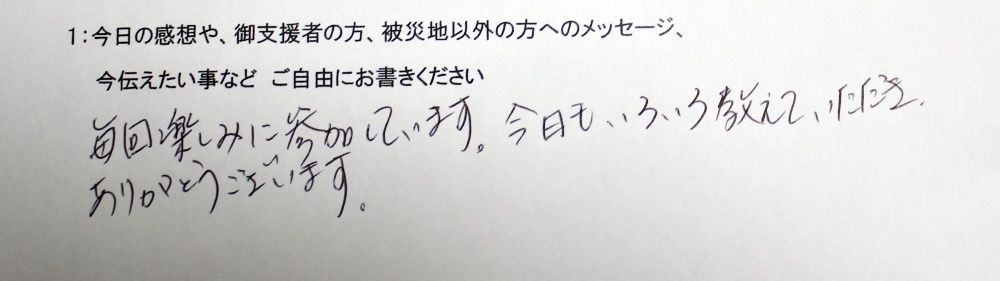 1:今日の感想や、御支援者の方、被災地以外の方へのメッセージ、
今伝えたい事など ご自由にお書きください
毎回楽しみに参加しています。今日もいろいろ教えていただき、
ありがとうございます。